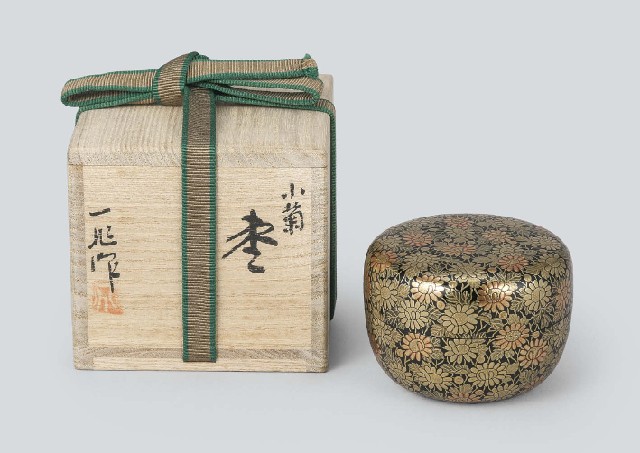 小菊
棗
一彫作